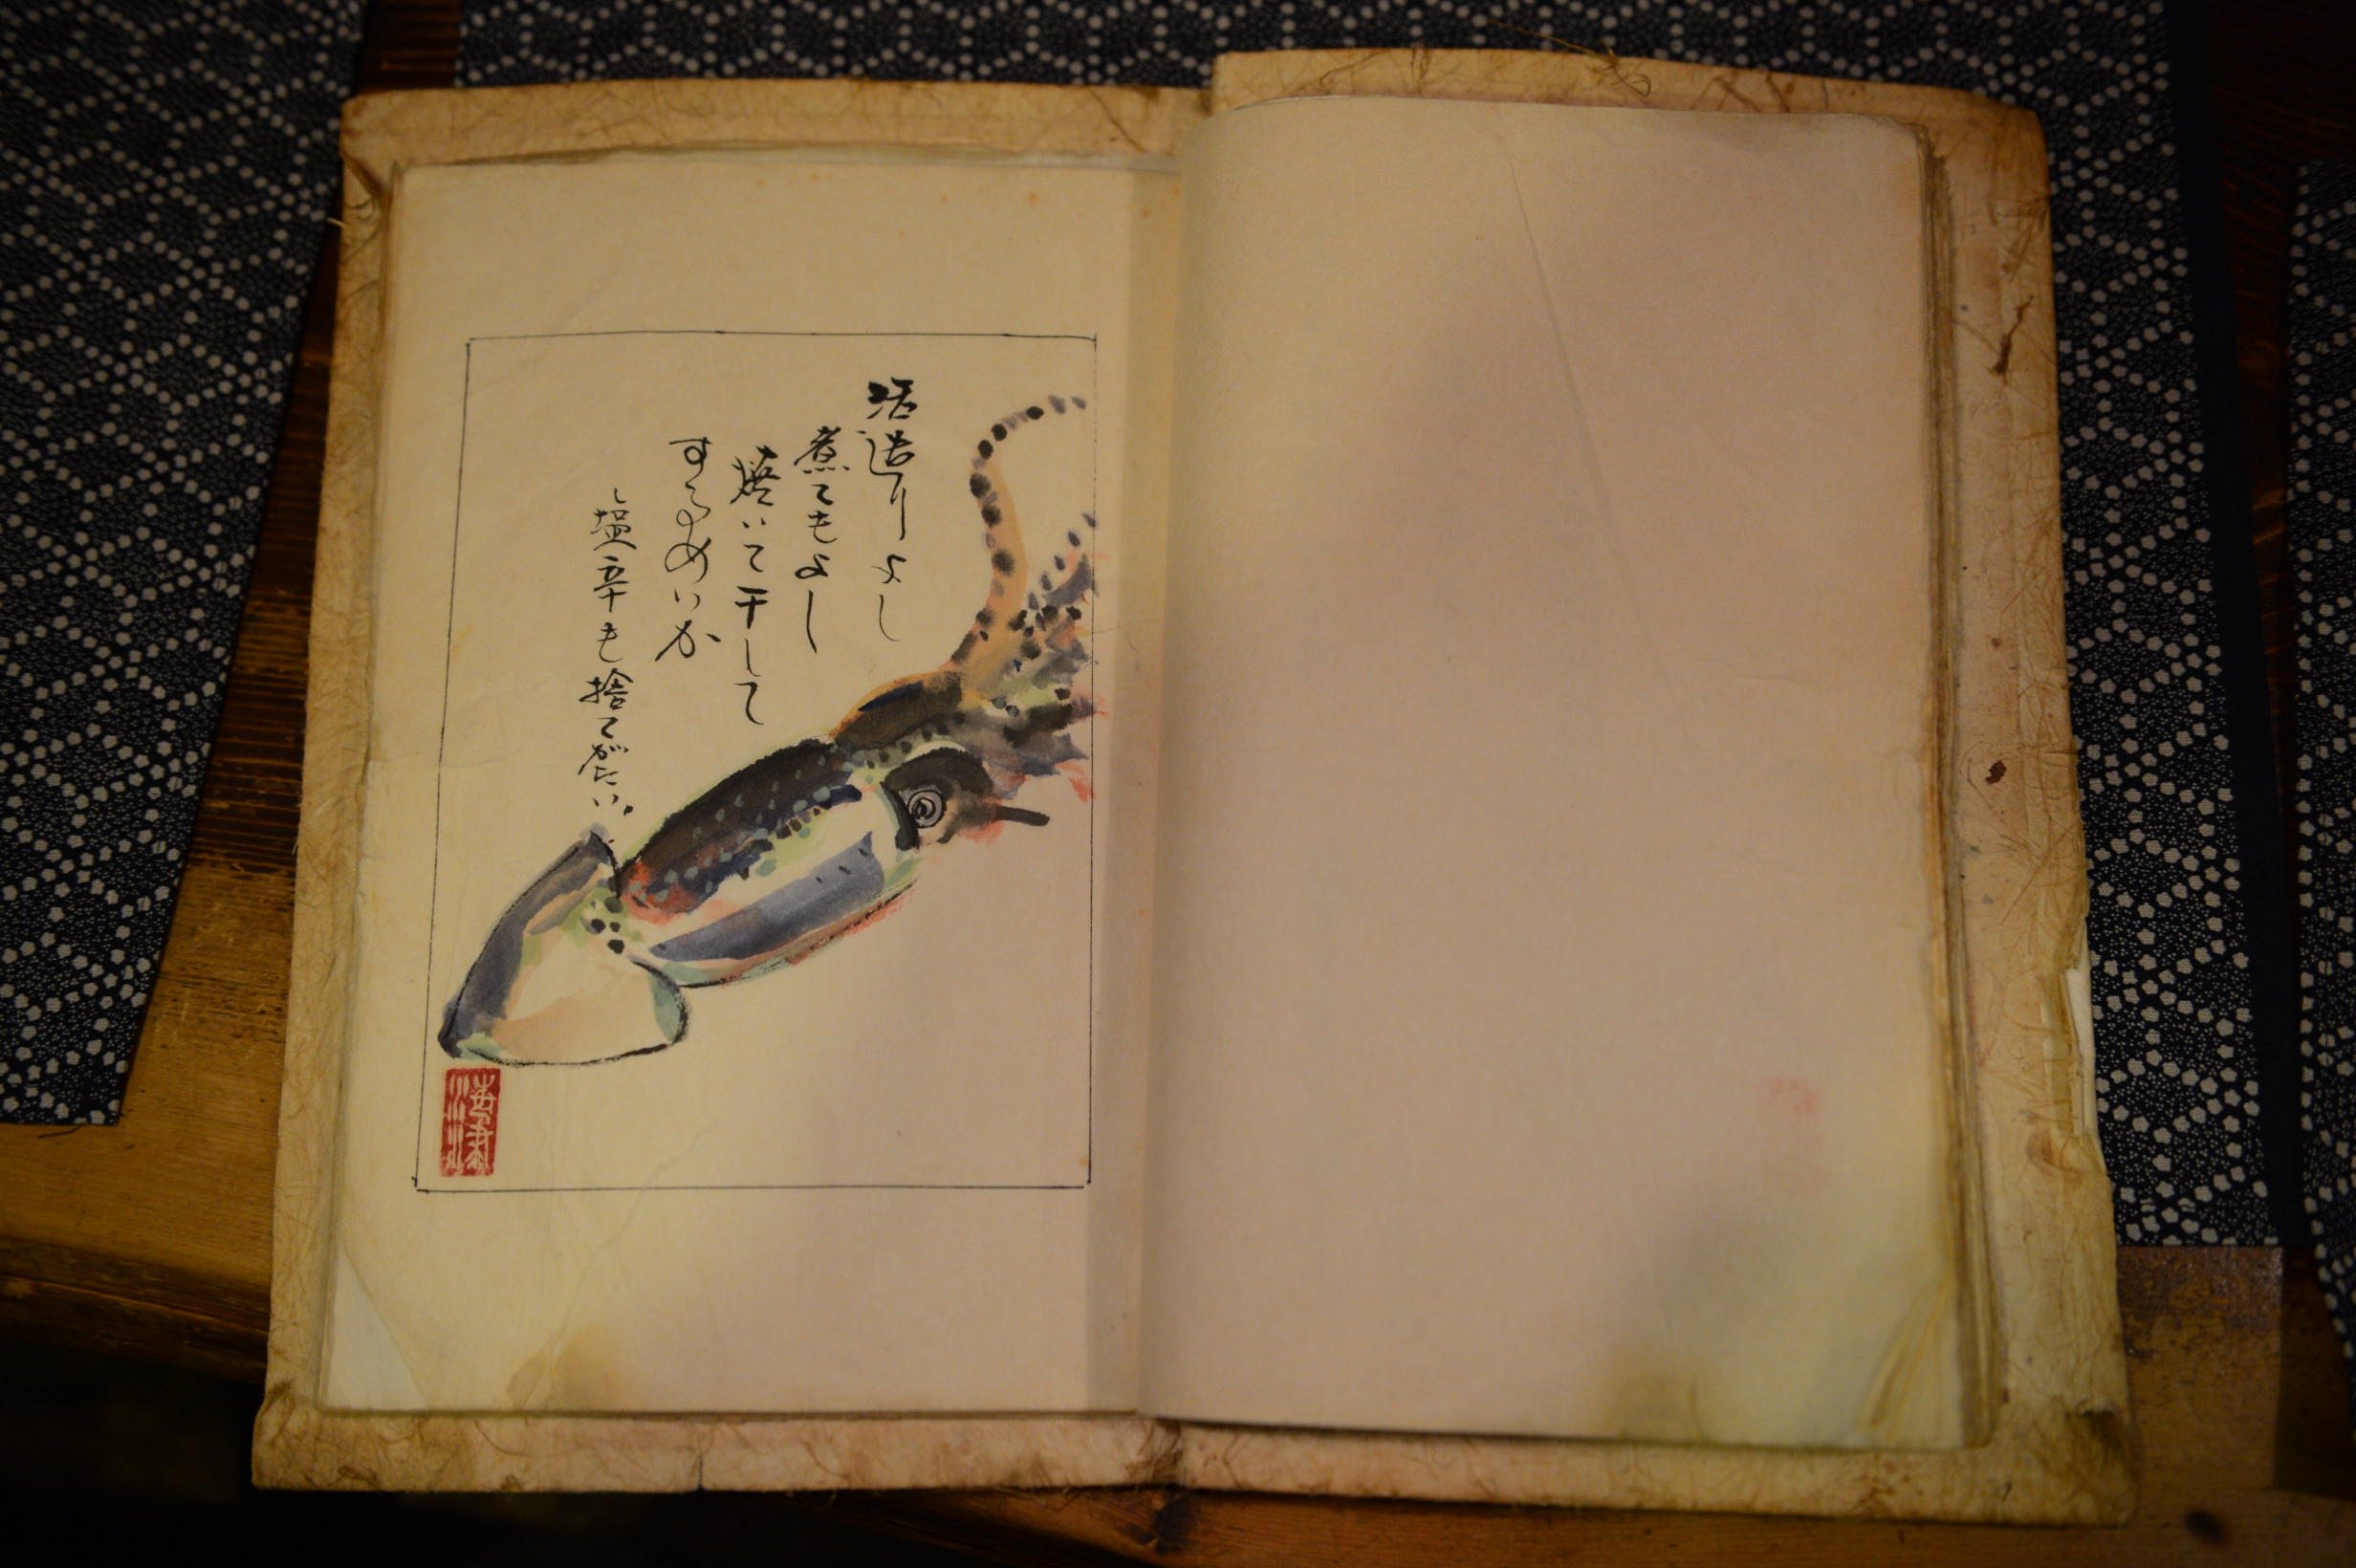 活造りよし
煮てもよし
焼いて干して
するめいか
塩辛も捨てがたい。